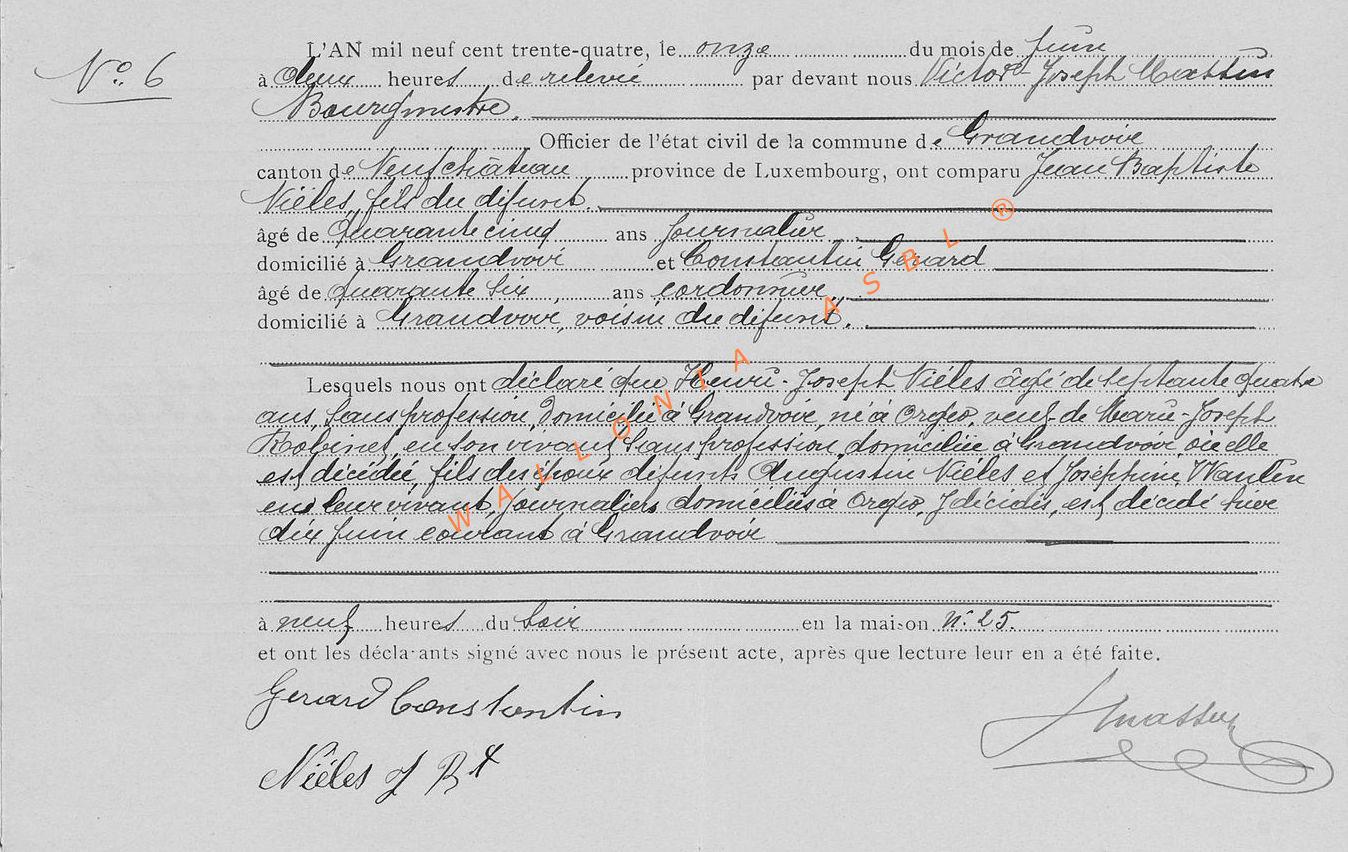 N° 6
L'AN mil neuf cent trente-quatre, le onze du mois de Juin
à deux heures de relevée par devant nous Victor-Joseph Massin
Bourgmestre.
Officier de l'état civil de la commune de Grandvoir
canton de Neufchâteau province de Luxembourg, ont comparu Jean Baptiste
Nièles, fils du défunt.
âgé de quarante cinq ans journalier
domicilié à Grandvoir et Constantin Gérard
âgé de quarante six ans cordonnier,
domicilié à Grandvoir, voisin du défunt.
Lesquels nous ont déclaré que Henri-Joseph Nièles âgé de septante quatre
ans, sans profession, domicilié à Grandvoir, né à Orgeo, veuf de Marie-Joseph
Robinet, en son vivant sans profession, domiciliée à Grandvoir, où elle
est décédée, fils des époux défunts Augustin Nièles et Joséphine
en leur vivant journaliers domiciliés à Orgeo, y décédés, est décédé
dix juin courant à Grandvoir
à neuf heures du soir en la maison N° 25.
et ont les déclarants signé avec nous le présent acte, après que lecture leur en a été faite.
Gerard Constantin
Massin
Nièles J Bt
WALLONIA ASBL ®